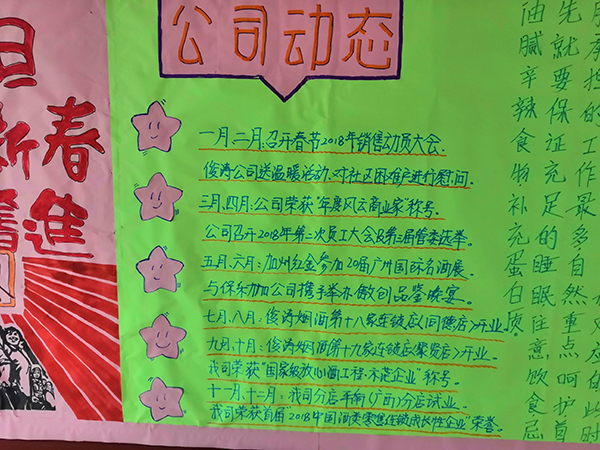 旦
新春
進
公司动态
一月、二月:召开春节2018年销售动员大会.
俊涛公司送温暖活动、对社区困难户进行慰问.
三月、四月:公司荣获"年度风云商业家"称号.
公司召开2018年第三次员工大会及第三届管委选举.
五月、六月:加州红金参加20届广州国际名酒展.
与保乐加公司携手举办品鉴晚宴.
七月、八月:俊涛烟酒第十八家连锁店<同德店>开业.
九月、十月:俊涛烟酒第十九家连锁店<聚贤店>开业.
我司荣获"国家级放心酒工程·示范企业"称号.
十一月、十二月:我司分店平南(广西)分店试业.
我司荣获首届"2018中国酒类零售连锁成长性企业"荣誉.
担的工作最多自然
此时
先就要保证充足的睡眠重点呵护首
油腻辛辣食物补充蛋白质注意饮食忌